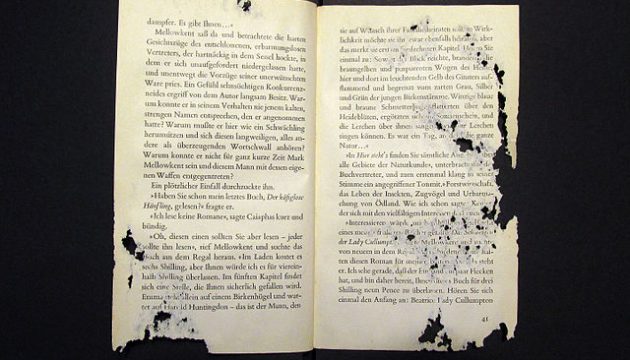 dampfer. Es gibt Ihnen...«
Mellowkent saß da und betrachtete die harten
Gesichtszüge des entschlossenen, erbarmungslosen
Vertreters, der hartnäckig in dem Sessel hockte, in
dem er sich unaufgefordert niedergelassen hatte,
und unentwegt die Vorzüge seiner unerwünschten
Ware pries. Ein Gefühl sehnsüchtigen Konkurrenz-
neides ergriff von dem Autor langsam Besitz. War-
um konnte er in seinem Verhalten nie jenem kalten,
strengen Namen entsprechen, den er angenommen
hatte? Warum mußte er hier wie ein Schwächling
herumsitzen und sich diesen langweiligen, alles an-
dere als überzeugenden Wortschwall anhören?
Warum konnte er nicht für ganz kurze Zeit Mark
Mellowkent sein und diesem Mann mit dessen eige-
nen Waffen entgegentreten?
Ein plötzlicher Einfall durchzuckte ihn.
»Haben Sie schon mein letztes Buch, Der käfiglose
Hänfling, gelesen?« fragte er.
»Ich lese keine Romane«, sagte Caiaphas kurz und
bündig.
»Oh, diesen einen sollten Sie aber lesen – jeder
sollte ihn lesen«, rief Mellowkent und suchte das
Buch aus dem Regal heraus. »Im Laden kostet es
sechs Shilling, aber Ihnen würde ich es für vierein-
halb Shilling überlassen. Im fünften Kapitel findet
sich eine Stelle, die Ihnen sicherlich gefallen wird.
Emma auf einem Birkenhügel und war-
tet auf Harold Huntingdon – das ist der Mann, den
sie auf Wunsch ihrer Familie heiraten soll. In Wirk-
lichkeit möchte sie ihn zwar ebenfalls heiraten, aber
das merkt sie erst im fünfzehnten Kapitel. Hören Sie
einmal zu: Soweit der Blick reichte, brandeten die
braungelben und purpurroten Wogen des
hier und dort im leuchtenden Gelb des Ginsters auf-
flammend und begrenzt vom zarten Grau, Silber
und Grün der jungen Birkenstämme. Winzige blaue
und braune Schmetterlinge flatterten über den
Heideblüten, ergötzten sich Sonnenschein, und
die Lerchen über ihnen sangen, Lerchen
singen können. Es war ein Tag, an dem die ganze
Natur...«
»In Hier steht's finden Sie sämtliche über
alle Gebiete der Naturkunde«, unterbrach der
Buchvertreter, und zum erstenmal klang in seiner
Stimme ein angegriffener Ton mit. »Forstwirtschaft,
das Leben der Insekten, Zugvögel und Urbarma-
chung von Ödland. Wie ich schon sagte: der
der sich mit den vielfältigen Interessen
»Interessieren würde
eines meiner Bücher gefallen: Das
der Lady Cullumpton Mellowkent und
von neuem in dem Regal. haben
diesen Roman für mein bestes steht
er. Ich sehe gerade, daß der Einband ein paar Flecken
hat, und bin daher bereit, Ihnen dieses Buch für drei
Shilling neun Pence zu überlassen. Hören Sie sich
einmal den Anfang an: Beatrice Lady Cullumpton
41